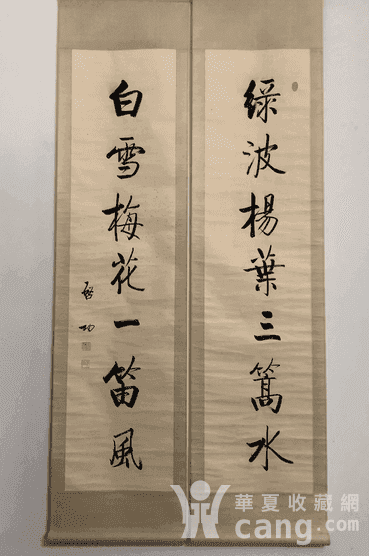 綠波楊葉三篙水
白雪梅花一笛風
啓功
華夏收藏網
cang.com